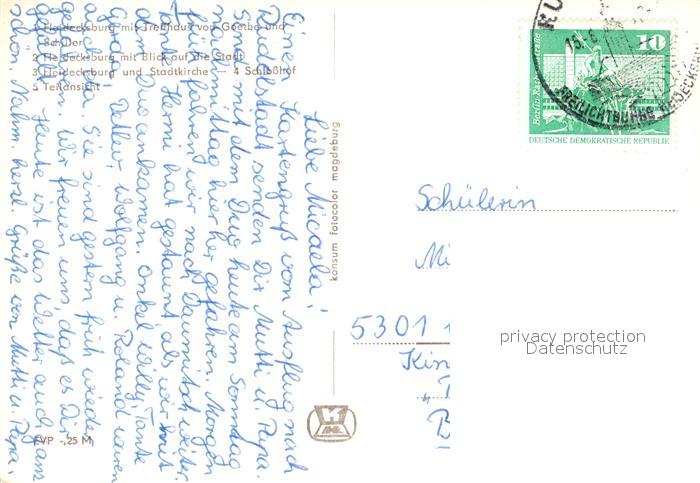 1 Heidecksburg mit Treffhaus von Goethe und
Schiller
2 Heidecksburg mit Blick auf die Stadt
3 Heidecksburg und Stadtkirche   4 Schloßhof
5 Teilansicht
Liebe Micaela!
Einen Kartengruß vom Ausflug nach
Rudolstadt senden Dir Mutti u. Papa.
Sind mit dem Duo heute am Sonntag
nachmittag hierher gefahren. Morgen
früh fahren wir nach Daumitsch weiter.
Tante Hermi hat gestaunt als wir mit
dem Duo ankamen. Onkel Willy, Tante
Detlev, Wolfgang u. Roland waren
auch da. Sie sind gestern früh wieder
gefahren. Wir freuen uns, daß es Dir
gefällt. Heute ist das Wetter auch ganz
schön. Nochm. herzl. Grüße von Mutti u. Papa.
EVP -,25 M
konsum fotocolor magdeburg
10
DEUTSCHE DEMOKRATISCHE REPUBLIK
FREILICHTBÜHNE
Schülerin
Mi
5301
Kin
B
privacy protection
Datenschutz